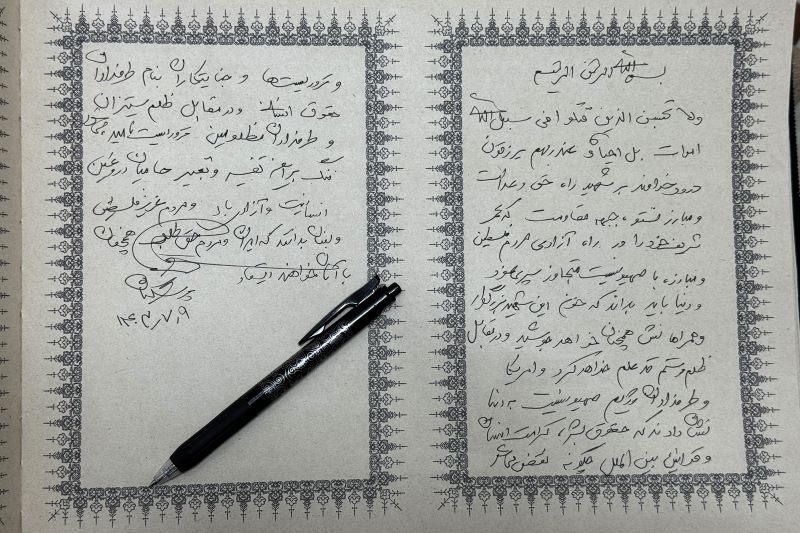 بسم الله الرحمن الرحیم
ولا تحسبن الذین قتلوا فی سبیل الله
اموات بل احیاء عند ربهم یرزقون
درود خداوند بر شهید راه حق و عدالت
و مبارز نستوه جبهه مقاومت که عمر
شریف خود را در راه آزادی مردم فلسطین
و مبارزه با صهیونیست متجاوز سپری نمود
و دنیا باید بداند که خون این شهید بزرگوار
و همراهانش همچنان خواهد جوشید و در مقابل
ظلم و ستم قد علم خواهد کرد و امریکا
و طرفداران رژیم صهیونیست به دنیا
نشان دادند که حقوق بشر، کرامت انسان
و قوانین بین الملل چگونه نقض
و تروریست‌ها و جنایتکاران بنام طرفداران
حقوق انسان و در مقابل ظلم ستیزان
و طرفداران مظلومین تروریست نامیده
ننگ بر این تفسیر و تعبیر حامیان دروغین
انسانیت و آزادی باد و مردم عزیز فلسطین
و لبنان بدانند که ایران و مردم حق طلب همچنان
با آنان خواهند ایستاد
پزشکیان
۱۴۰۳،۷،۹